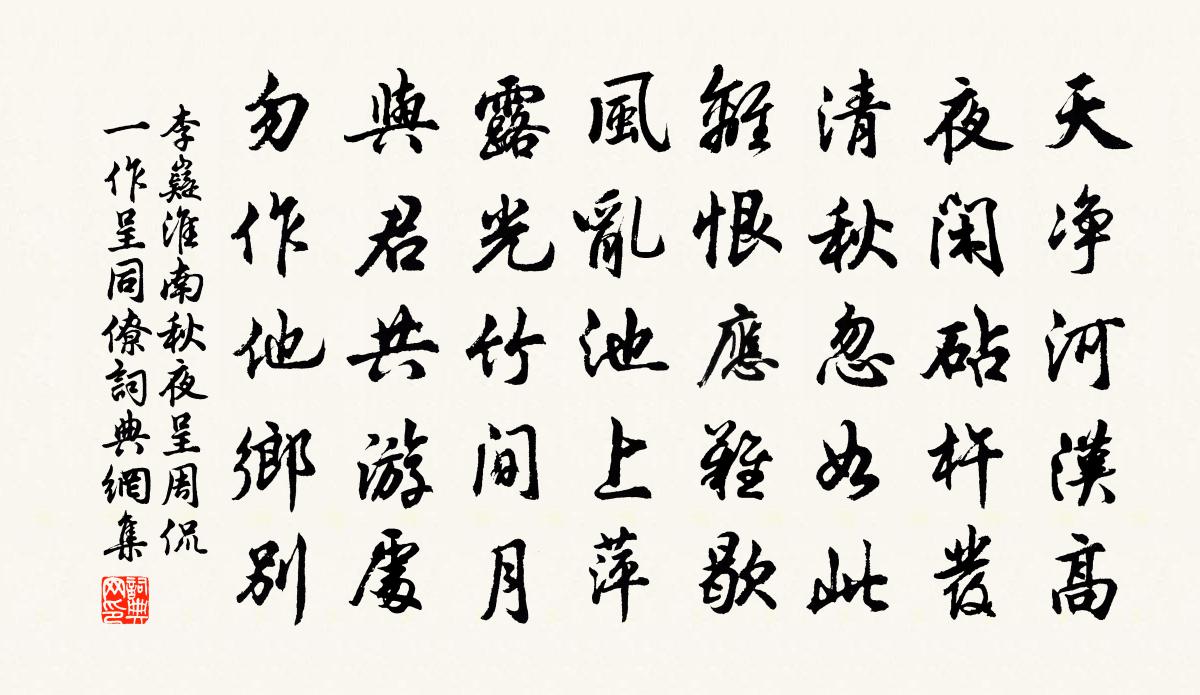 天净河漢高
夜閑砧杵發
清秋忽如此
離恨應難歇
風亂池上萍
露光竹間月
與君共游處
勿作他鄉別
李嶷淮南秋夜呈周侃
一作呈同僚詞典網集
詞典网印